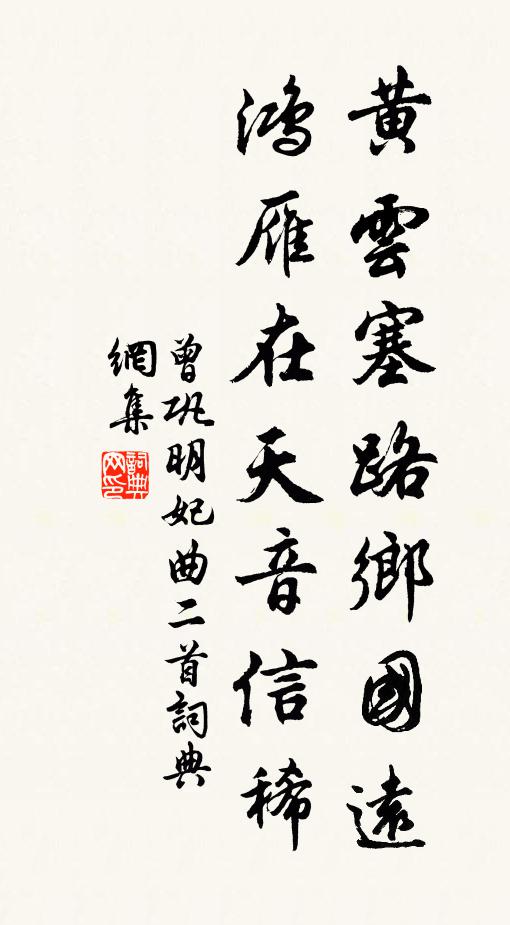 黃雲塞路鄉國遠
鴻雁在天音信稀
曾巩明妃曲二首詞典
網集
詞典
网印